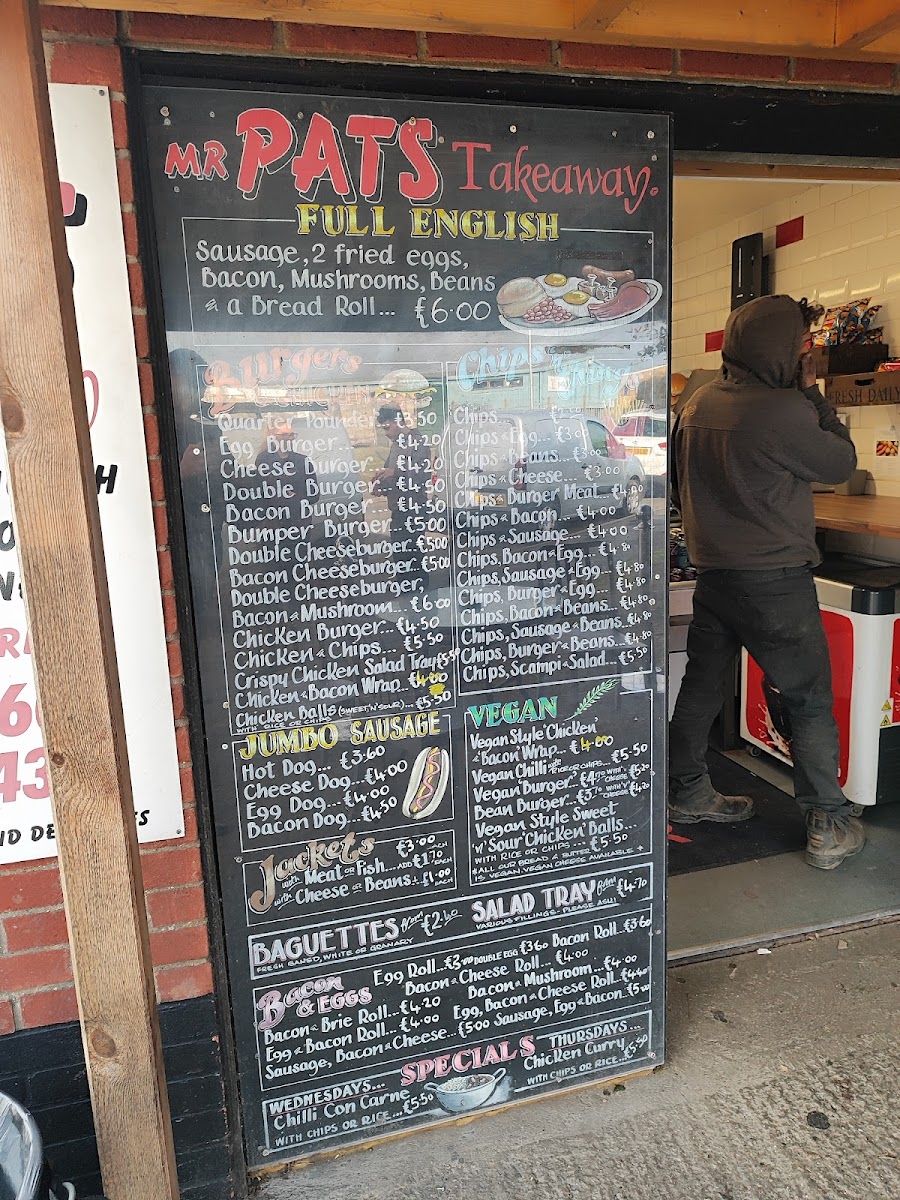 MR PATS Takeaway.
FULL ENGLISH
Sausage, 2 fried eggs,
Bacon, Mushrooms, Beans
& a Bread Roll... £6.00
Burgers
Quarter Pounder £3.50
Egg Burger... £4.20
Cheese Burger... £4.20
Double Burger... £4.50
Bacon Burger... £4.50
Bumper Burger... £5.00
Double Cheeseburger.. £5.00
Bacon Cheeseburger.. £5.00
Double Cheeseburger,
Bacon & Mushroom... £6.00
Chicken Burger... £4.50
Chicken & Chips... £5.50
Crispy Chicken Salad Tray £5.50
Chicken & Bacon Wrap..
Chicken Balls (SWEET 'N' SOUR)... £5.50
WITH RICE OR CHIPS
Chips
Chips...
Chips & Egg... £3.00
Chips & Beans... £3.00
Chips & Cheese... £3.00
Chips & Burger Meat... £4.00
Chips & Bacon... £4.00
Chips & Sausage... £4.00
Chips, Bacon & Egg... £4.80
Chips, Sausage & Egg... £4.80
Chips, Burger & Egg... £4.80
Chips, Bacon & Beans... £4.80
Chips, Sausage & Beans.. £4.80
Chips, Burger & Beans... £4.80
Chips, Scampi & Salad... £5.50
JUMBO SAUSAGE
Hot Dog... £3.60
Cheese Dog... £4.00
Egg Dog... £4.00
Bacon Dog... £4.50
VEGAN
Vegan Style 'Chicken'
& 'Bacon' Wrap... £4.00
Vegan Chilli RICE OR CHIPS... £5.50
Vegan Burger.. WITH 'V' CHEESE £5.20
Bean Burger... WITH 'V' CHEESE £4.20
Vegan Style Sweet
'n' Sour 'Chicken' Balls...
WITH RICE OR CHIPS... £5.50
*ALL OUR BREAD & BUTTER
IS VEGAN. VEGAN CHEESE AVAILABLE *
Jackets £3.00 EACH
with Meat or Fish... ADD £1.70 EACH
with Cheese or Beans.. £1.00 EACH
BAGUETTES from £2.60
FRESH BAKED, WHITE OR GRANARY
SALAD TRAY from £4.70
VARIOUS FILLINGS - PLEASE ASK!
Bacon & EGGS
Egg Roll... £3.00 DOUBLE EGG £3.60 Bacon Roll.. £3.60
Bacon & Cheese Roll... £4.00
Bacon & Brie Roll... £4.20 Bacon & Mushroom... £4.00
Egg & Bacon Roll... £4.00 Egg, Bacon & Cheese Roll.. £4.40
Sausage, Bacon & Cheese... £5.00 Sausage, Egg & Bacon.. £5.00
SPECIALS
WEDNESDAYS...
Chilli Con Carne
WITH CHIPS OR RICE... £5.50
THURSDAYS...
Chicken Curry
WITH CHIPS OR RICE... £5.50
FRESH DAILY